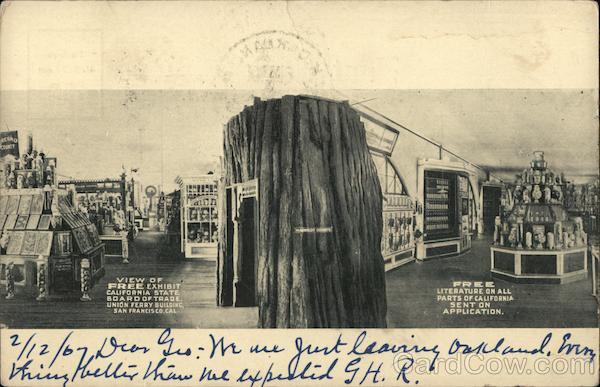 VIEW OF
FREE EXHIBIT
CALIFORNIA STATE
BOARD OF TRADE,
UNION FERRY BUILDING
SAN FRANCISCO, CAL.
FREE
LITERATURE ON ALL
PARTS OF CALIFORNIA
SENT ON
APPLICATION.
2/12/07 Dear Geo:- We are just leaving Oakland. Every
thing better than we expected G.H.R.
CardCow.com